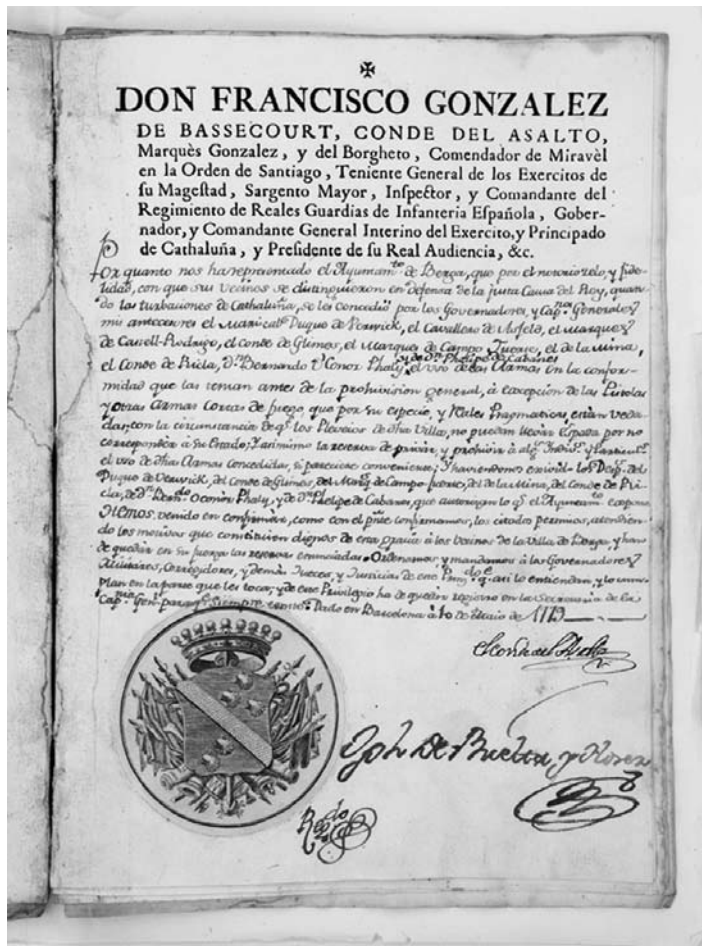 DON FRANCISCO GONZALEZ
DE BASSECOURT, CONDE DEL ASALTO,
Marquès Gonzalez, y del Borgheto, Comendador de Miravèl
en la Orden de Santiago, Teniente General de los Exercitos de
ſu Mageſtad, Sargento Mayor, Inſpector, y Comandante del
Regimiento de Reales Guardias de Infanteria Eſpañola, Gober-
nador, y Comandante General Interino del Exercito, y Principado
de Cathaluña, y Preſidente de ſu Real Audiencia, &c.
Por quanto nos ha representado el Ayuntamto. de Berga, que por el notorio zelo, y fide-
lidad, con que sus vecinos se distinguieron en defensa de la justa Causa del Rey, quan-
do las turbaciones de Cathaluña, se les concediò por los Governadores, y Capnes. Generales
mis antecesores el Mariscal Duque de Berwick, el Cavallero de Asfeld, el Marques
de Castell-Rodrigo, el conde de Glimes, el Marques de Campo Fuerte, el de la Mina,
y de Dn. Phelipe de Cabanes
el Conde de Ricla, Dn. Bernardo O Conor Phaly, el uso de las Armas en la confor-
midad que las tenian antes de la prohivision general, à excepcion de las Pistolas
y otras Armas Cortas de fuego, que por su especie, y Reales Pragmaticas, estàn veda-
das, con la circunstancia de qe. los Pleveios de dha Villa, no puedan llevar Espada por no
corresponder à su Estado; y asimismo la reserva de privar, y prohivir à algs. Indivs. y Particuls.
el uso de dhas Armas Concedidas, si pareciese conveniente; y haviendonos exivido los del
Duque de Verwick, del Conde de Glimes, del Marqs. de Campo-fuerte, del de la Mina, del Conde de Ri-
cla, de Dn. Berndo. Oconor Phaly, y de Dn. Phelipe de Cabanes, que autorizan lo qe. el Ayuntamto. expone
Hemos venido en confirmar, como con el pñte confirmamos, los citados permisos, atendien-
do los motivos que constituien dignos de esta gracia à los vecinos de la Villa de Berga, y han
de quedar en su fuerza las reservas enunciadas. Ordenamos, y mandamos à los Governadores
Militares, Corregidores, y demàs Jueces, y Justicias de este Prindo. qe. asi lo entiendan, y lo cum-
plan en la parte que les toca; y de este Privilegio ha de quedar registro en la Secretaria de la
Capnia. Genl. para qe. siempre conste. Dado en Barcelona à 10 de Maio de 1779
El Conde del Asalto
Jph. De Buelta, y Florez
Regdo.